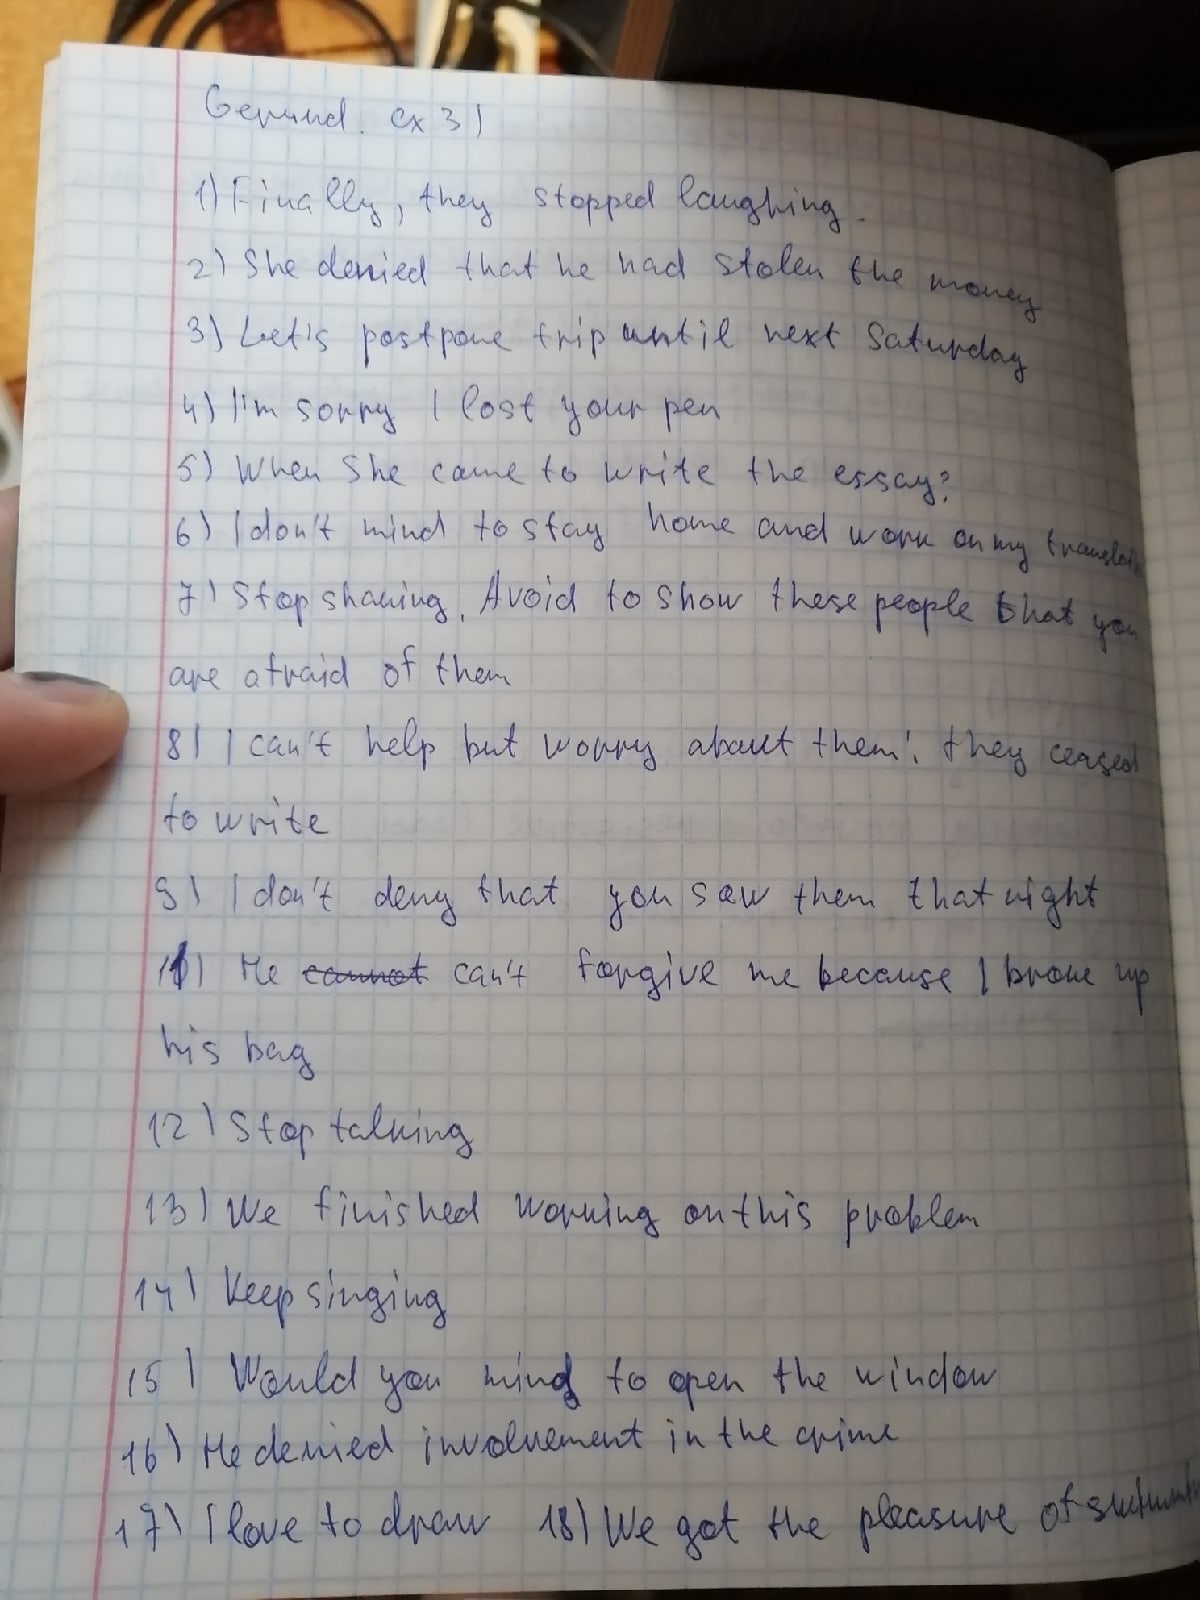 Gerund. ex 31
1) Finally, they stopped laughing.
2) She denied that he had stolen the money
3) Let's postpone trip until next Saturday
4) I'm sorry I lost your pen
5) When She came to write the essay?
6) I don't mind to stay home and work on my
7) Stop shaking. Avoid to show these people that you
are afraid of them
8) I can't help but worry about them: they ceased
to write
9) I don't deny that you saw them that night
11) He cannot can't forgive me because I broke up
his bag
12) Stop talking
13) We finished working on this problem
14) Keep singing
15) Would you mind to open the window
16) He denied involvement in the crime
17) I love to draw 18) We got the pleasure of